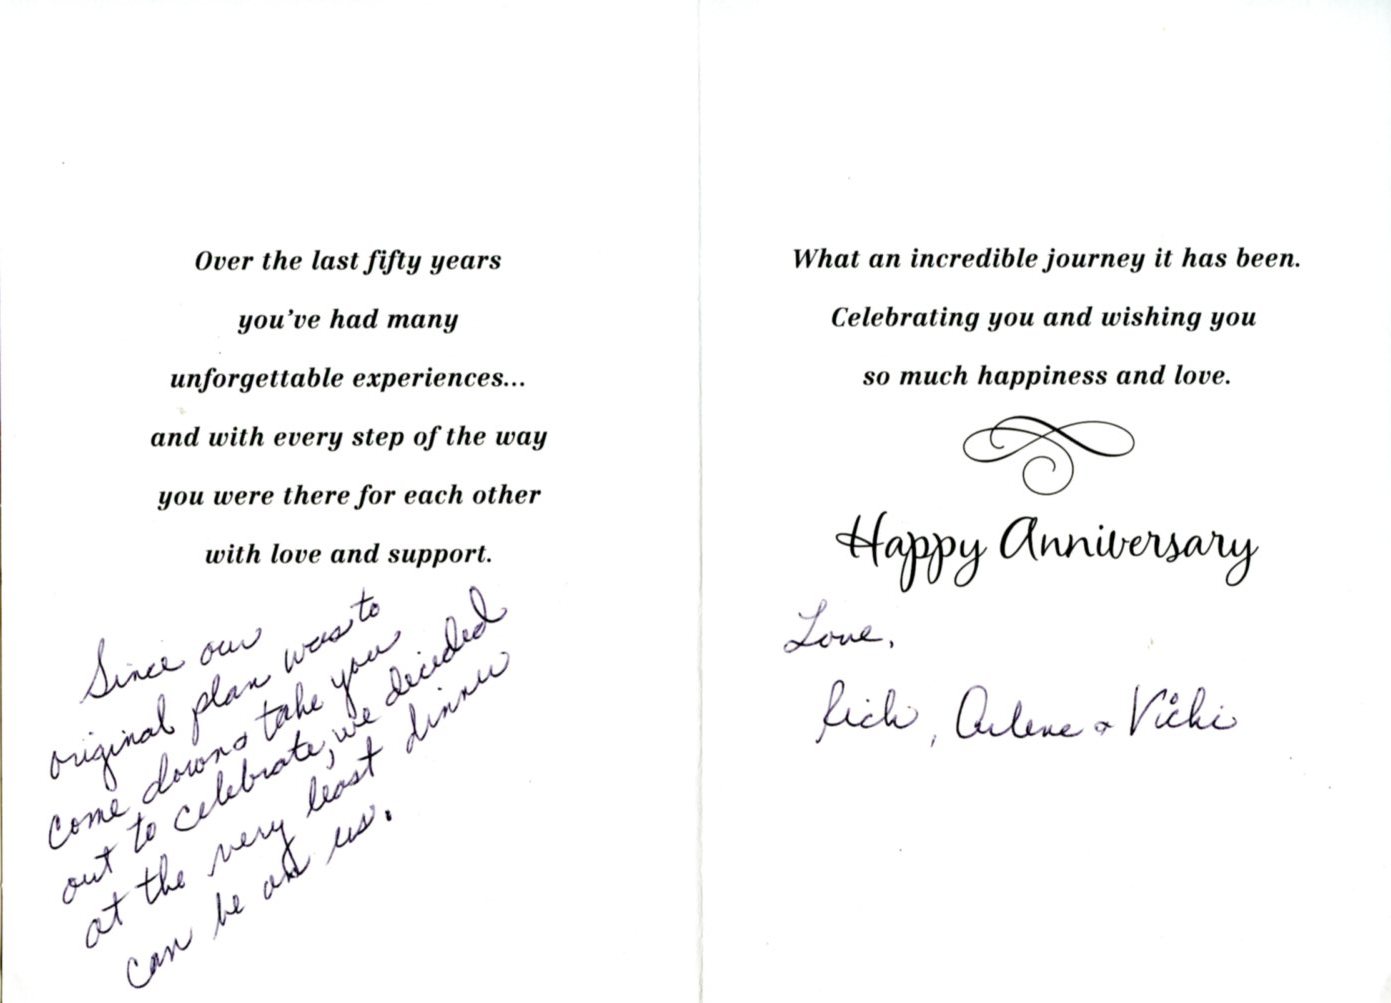 Over the last fifty years
you've had many
unforgettable experiences...
and with every step of the way
you were there for each other
with love and support.
Since our
original plan was to
come down & take you
out to celebrate, we decided
at the very least dinner
can be on us.
What an incredible journey it has been.
Celebrating you and wishing you
so much happiness and love.
Happy Anniversary
Love,
Rich, Arlene & Vicki